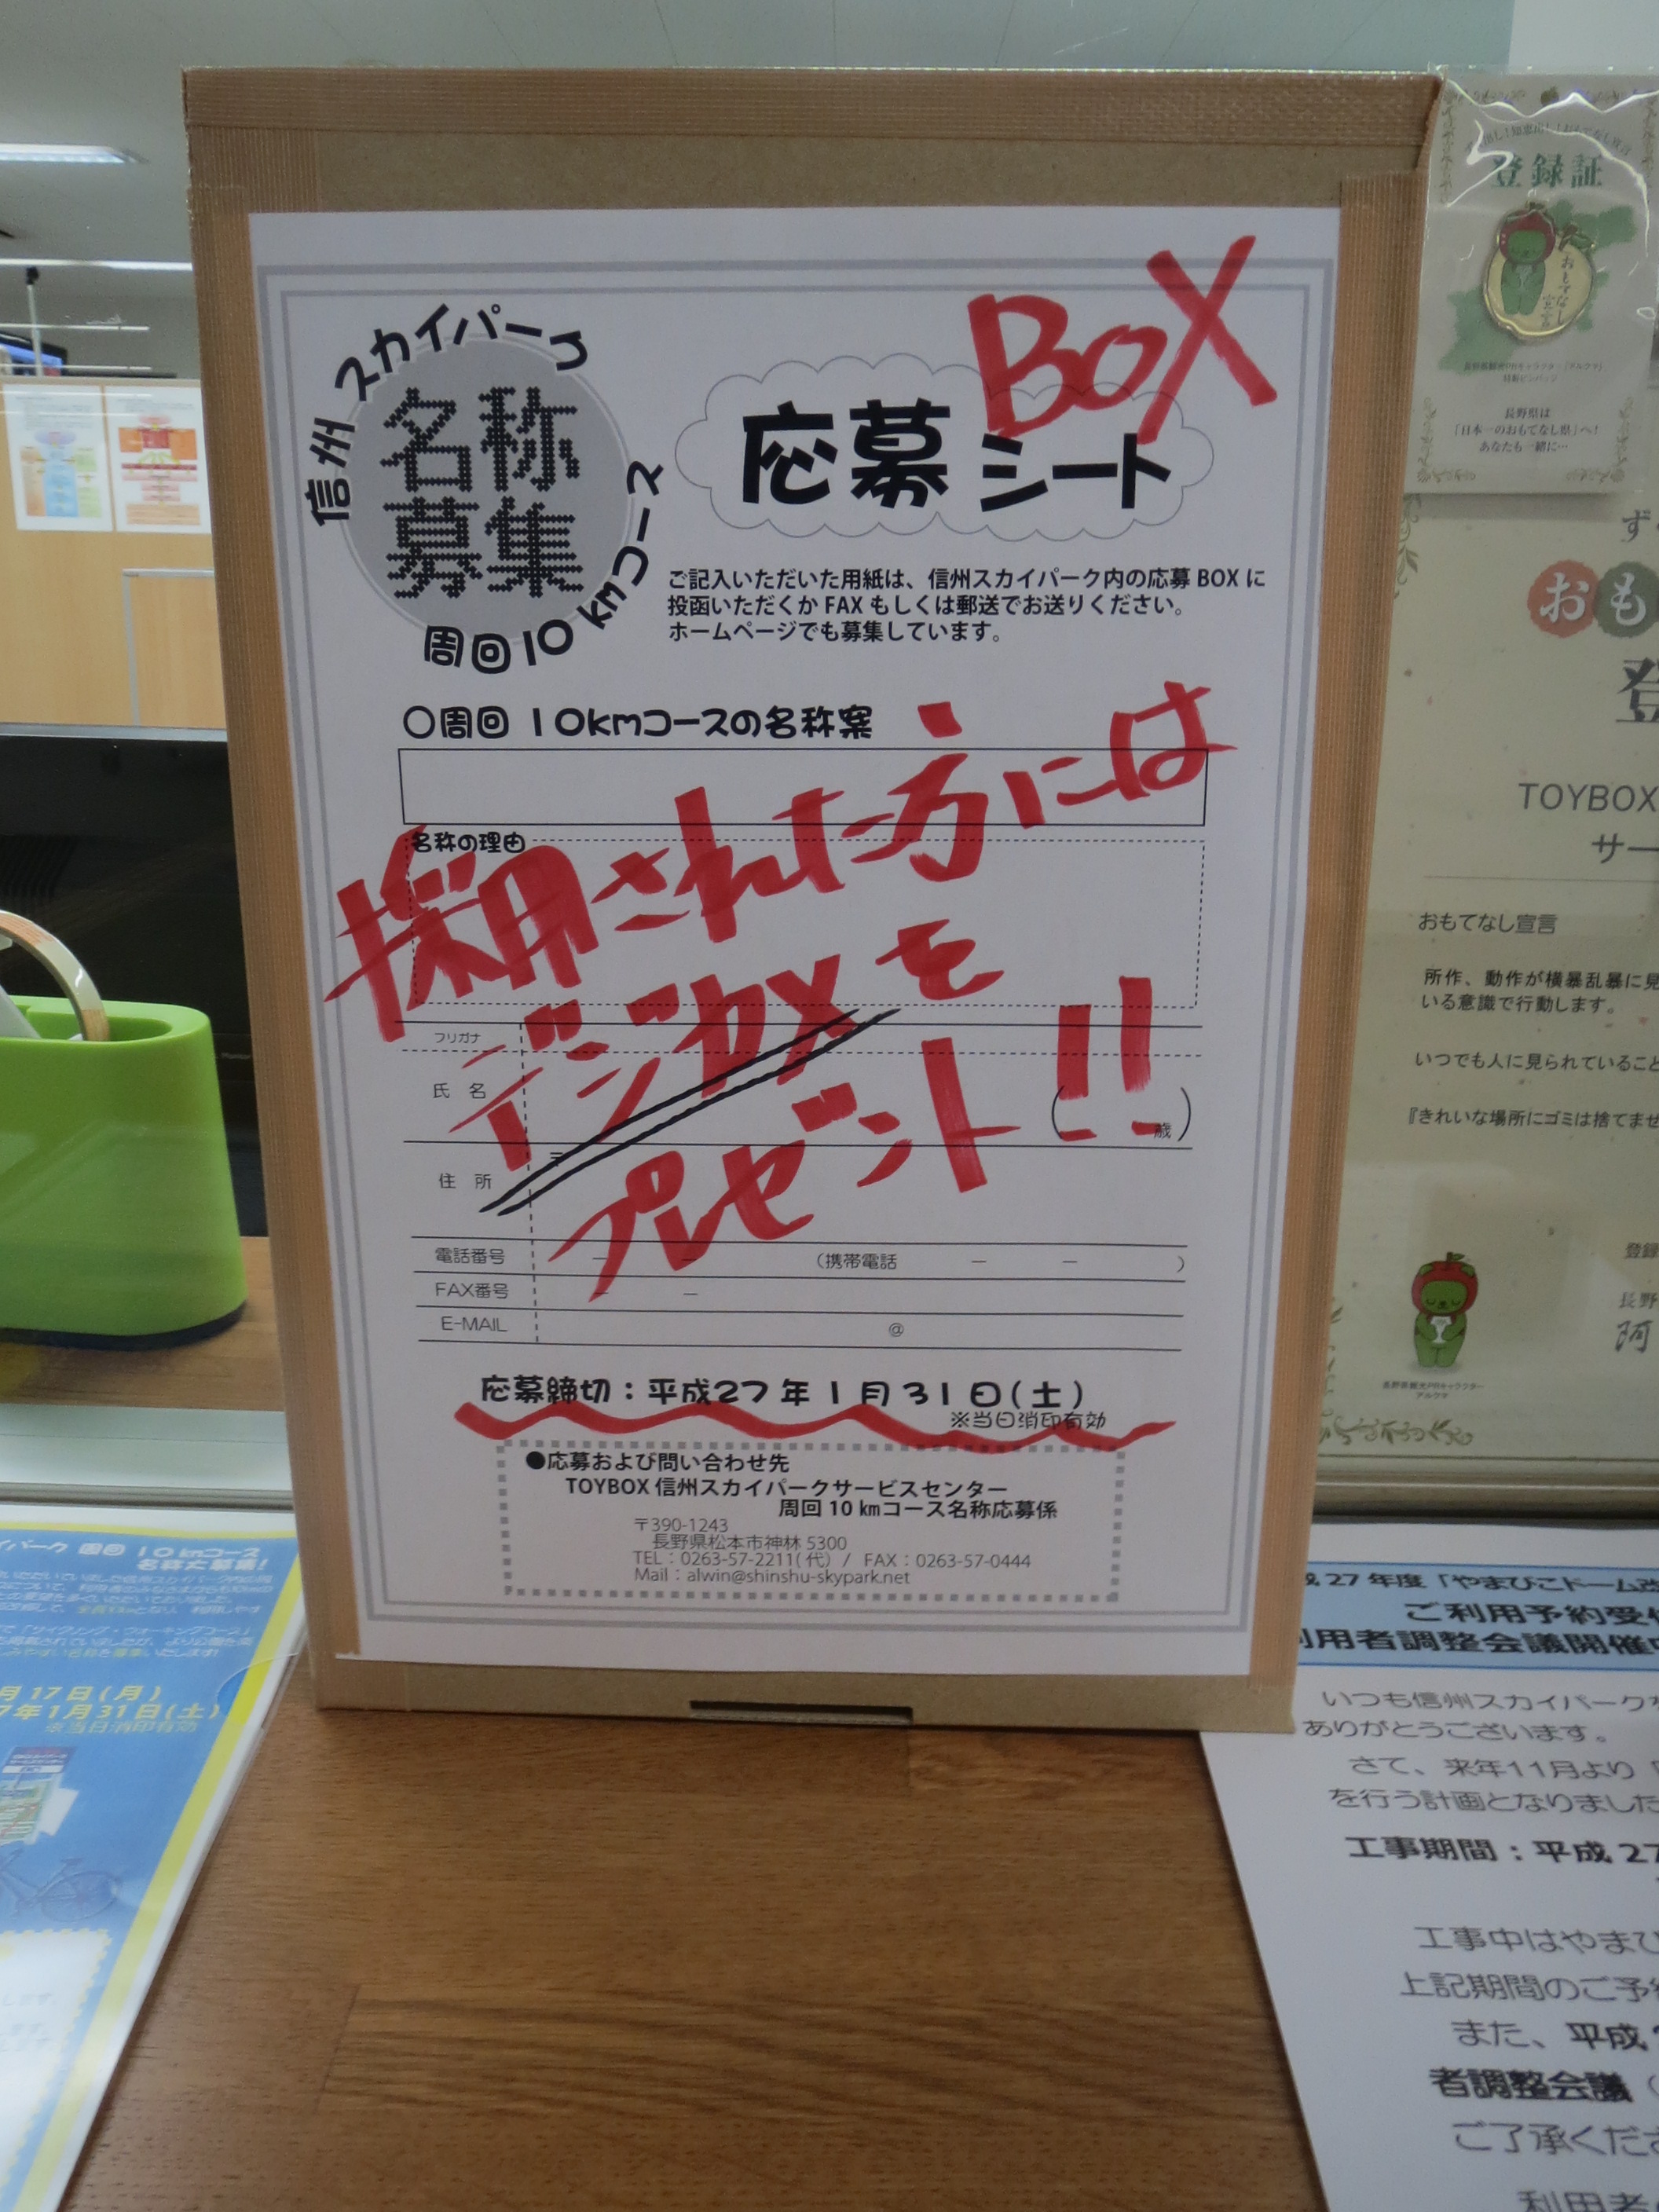 BOX
信州スカイパーク
名称
募集
周回10kmコース
応募シート
ご記入いただいた用紙は、信州スカイパーク内の応募BOXに
投函いただくかFAXもしくは郵送でお送りください。
ホームページでも募集しています。
○周回10kmコースの名称案
名称の理由
採用された方には
デジカメを
プレゼント!!
フリガナ
氏名
(歳)
住所 〒
電話番号 ― ― (携帯電話 ― ― )
FAX番号 ― ―
E-MAIL @
応募締切:平成27年1月31日(土)
※当日消印有効
●応募および問い合わせ先
TOYBOX 信州スカイパークサービスセンター
周回10㎞コース名称応募係
〒390-1243
長野県松本市神林5300
TEL:0263-57-2211(代) / FAX:0263-57-0444
Mail:alwin@shinshu-skypark.net
登録証
おもてなし
宣言
長野県は
「日本一のおもてなし県」へ!
あなたも一緒に…
ず
おも
登
TOYBOX
サー
おもてなし宣言
所作、動作が横暴乱暴に見
いる意識で行動します。
いつでも人に見られていること
『きれいな場所にゴミは捨てませ
登録
長野
長野県観光PRキャラクター
アルクマ
イパーク 周回10kmコース
名称大募集!
月17日(月)
7年1月31日(土)
※当日消印有効
成27年度「やまびこドーム改
ご利用予約受付
利用者調整会議開催
いつも信州スカイパークを
ありがとうございます。
さて、来年11月より
を行う計画となりました
工事期間:平成27
工事中はやまび
上記期間のご予約
また、平成
者調整会議(
ご了承くださ
利用者